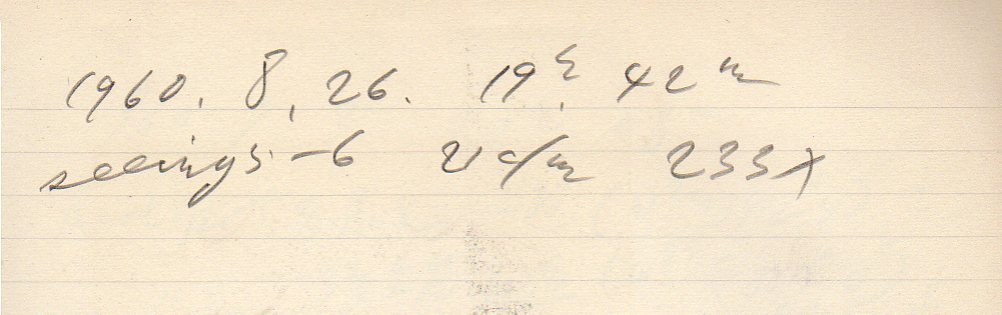 1960. 8. 26. 19h 42m
seeing 5-6 21 c/m 233x